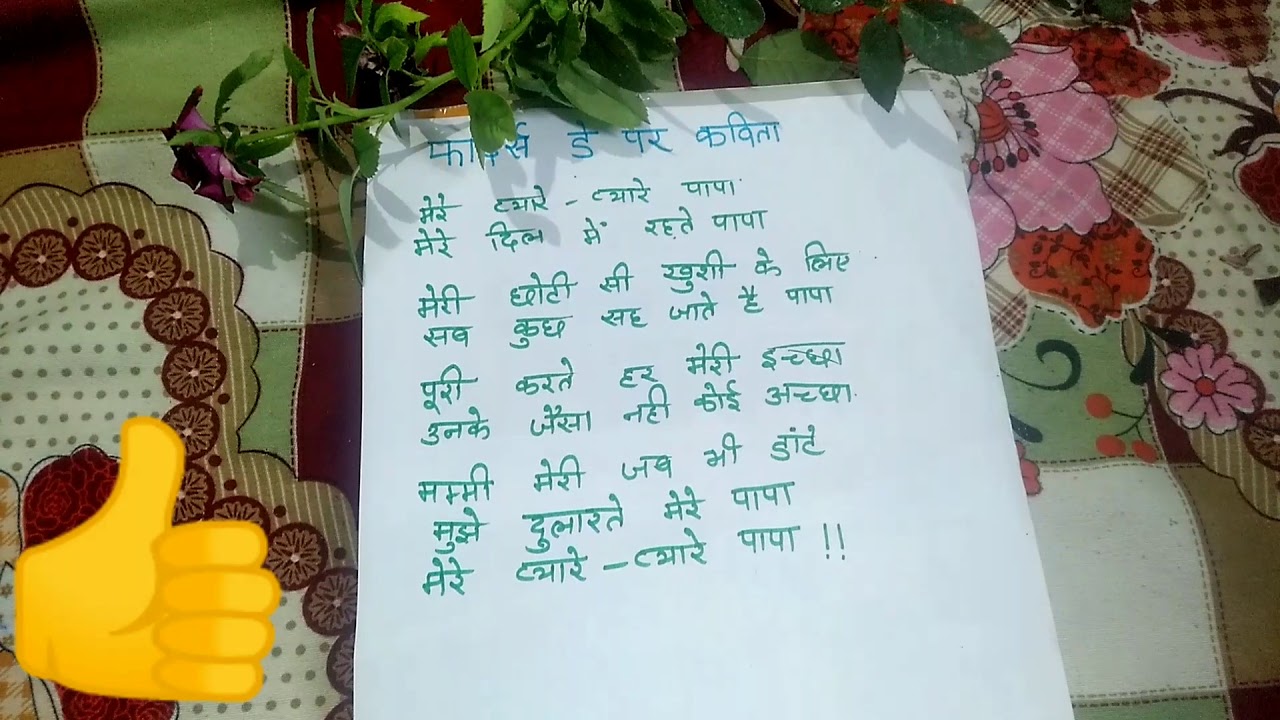 फादर्स डे पर कविता
मेरे प्यारे - प्यारे पापा
मेरे दिल में रहते पापा
मेरी छोटी सी खुशी के लिए
सब कुछ सह जाते है पापा
पूरी करते हर मेरी इच्छा
उनके जैसा नही कोई अच्छा
मम्मी मेरी जब भी डांटे
मुझे दुलारते मेरे पापा
मेरे प्यारे - प्यारे पापा !!